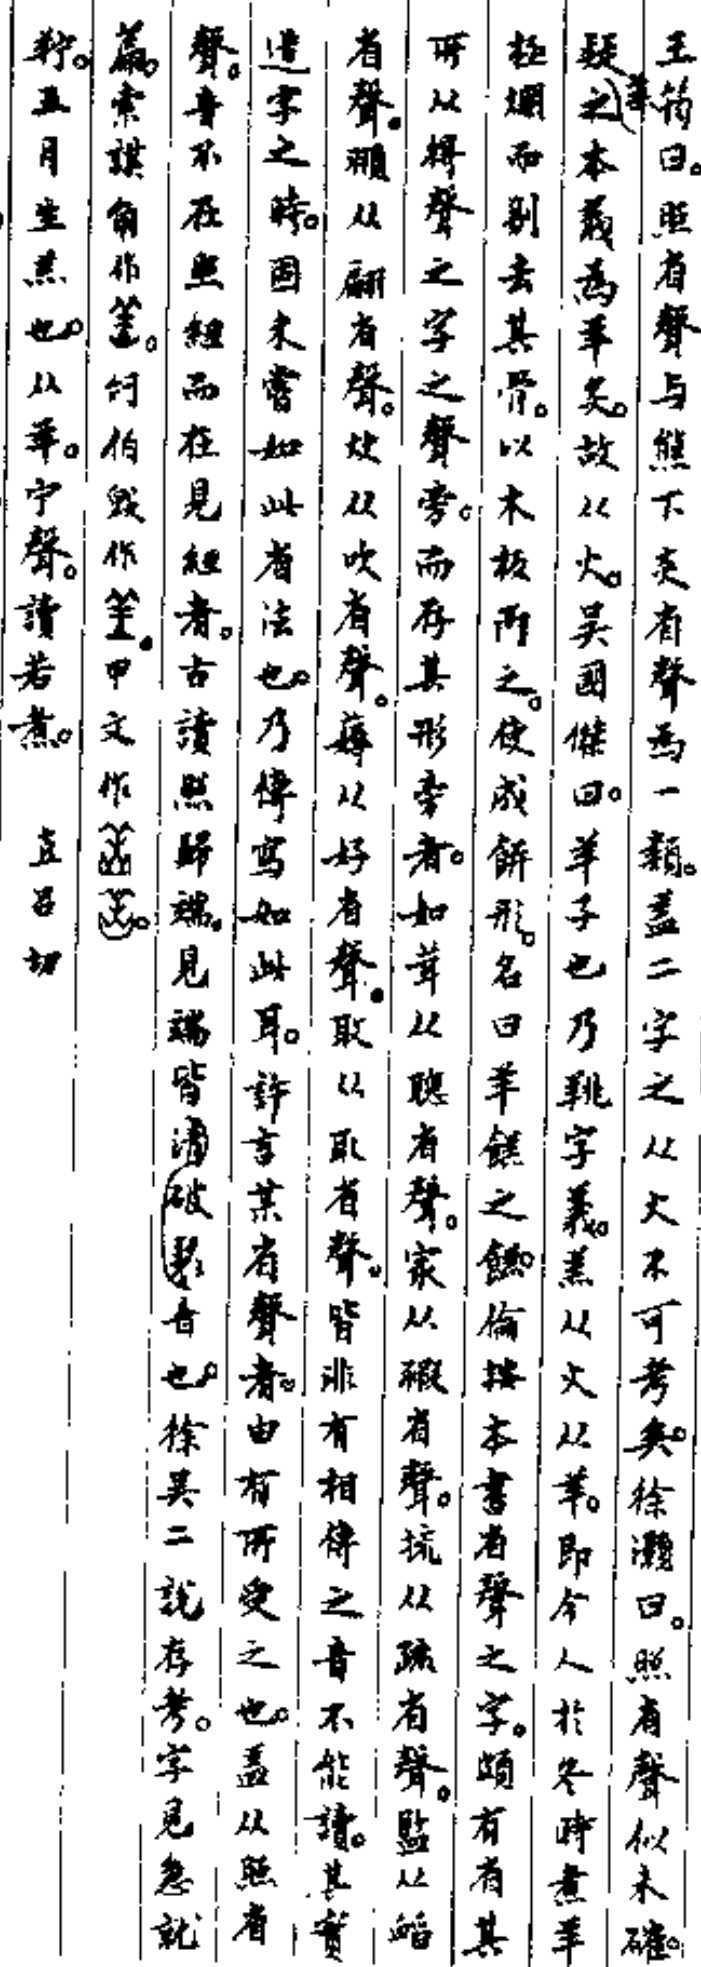 王筠曰。照省聲与熊下炎省聲為一類。蓋二字之从火不可考矣。徐灝曰。照省聲似未確。
疑羔之本義為羊炙。故从火。吳國傑曰。羊子也乃羜字義。羔从火从羊。即今人於冬時煮羊
極爛而剔去其骨。以木板而之。使成餅形。名曰羊餻之餻。倫按本書省聲之字。頗有省其
所以得聲之字之聲旁。而存其形旁者。如茸从聰省聲。家从豭省聲。梳从疏省聲。監从䘓
省聲。从翩省聲。炊从吹省聲。薅从好省聲。取从取省聲。皆非有相傳之音不能讀。其實
造字之時。固未嘗如此省法也。乃傳寫如此耳。許言某省聲者。由有所受之也。蓋从照省
聲。音不在照紐而在見紐者。古讀照歸端。見端皆清破裂音也。徐吳二說存考。字見急就
篇。索諆角作𦍌。伯毀作𦍌。甲文作
羜。五月生羔也。从羊。宁聲。讀若煮。 直呂切